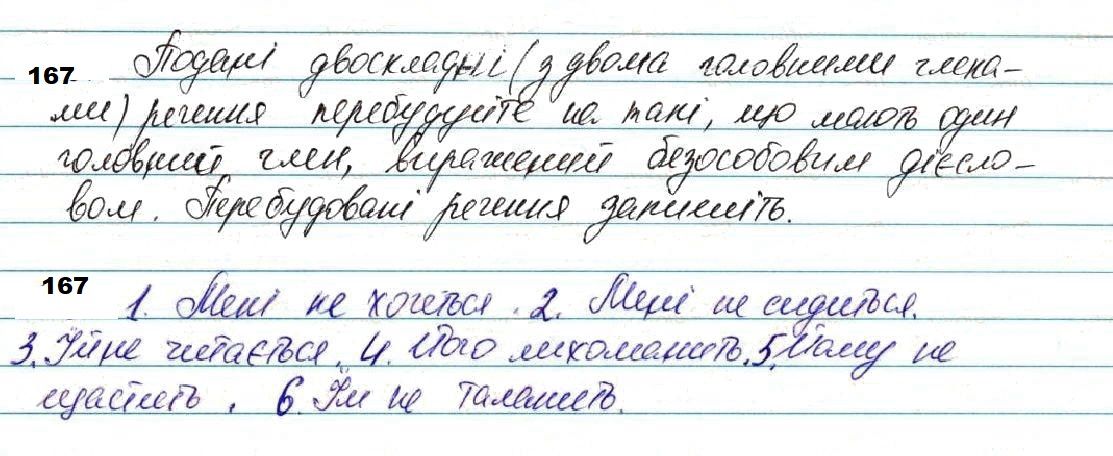 167 Подані двоскладні (з двома головними члена-
ми) речення перебудуйте на такі, що мають один
головний член, виражений безособовим дієсло-
вом. Перебудовані речення запишіть.
167 1. Мені не хочеться. 2. Мені не сидиться.
3. Їй не читається. 4. Його лихоманить. 5. Йому не
щастить. 6. Їм не таланить.